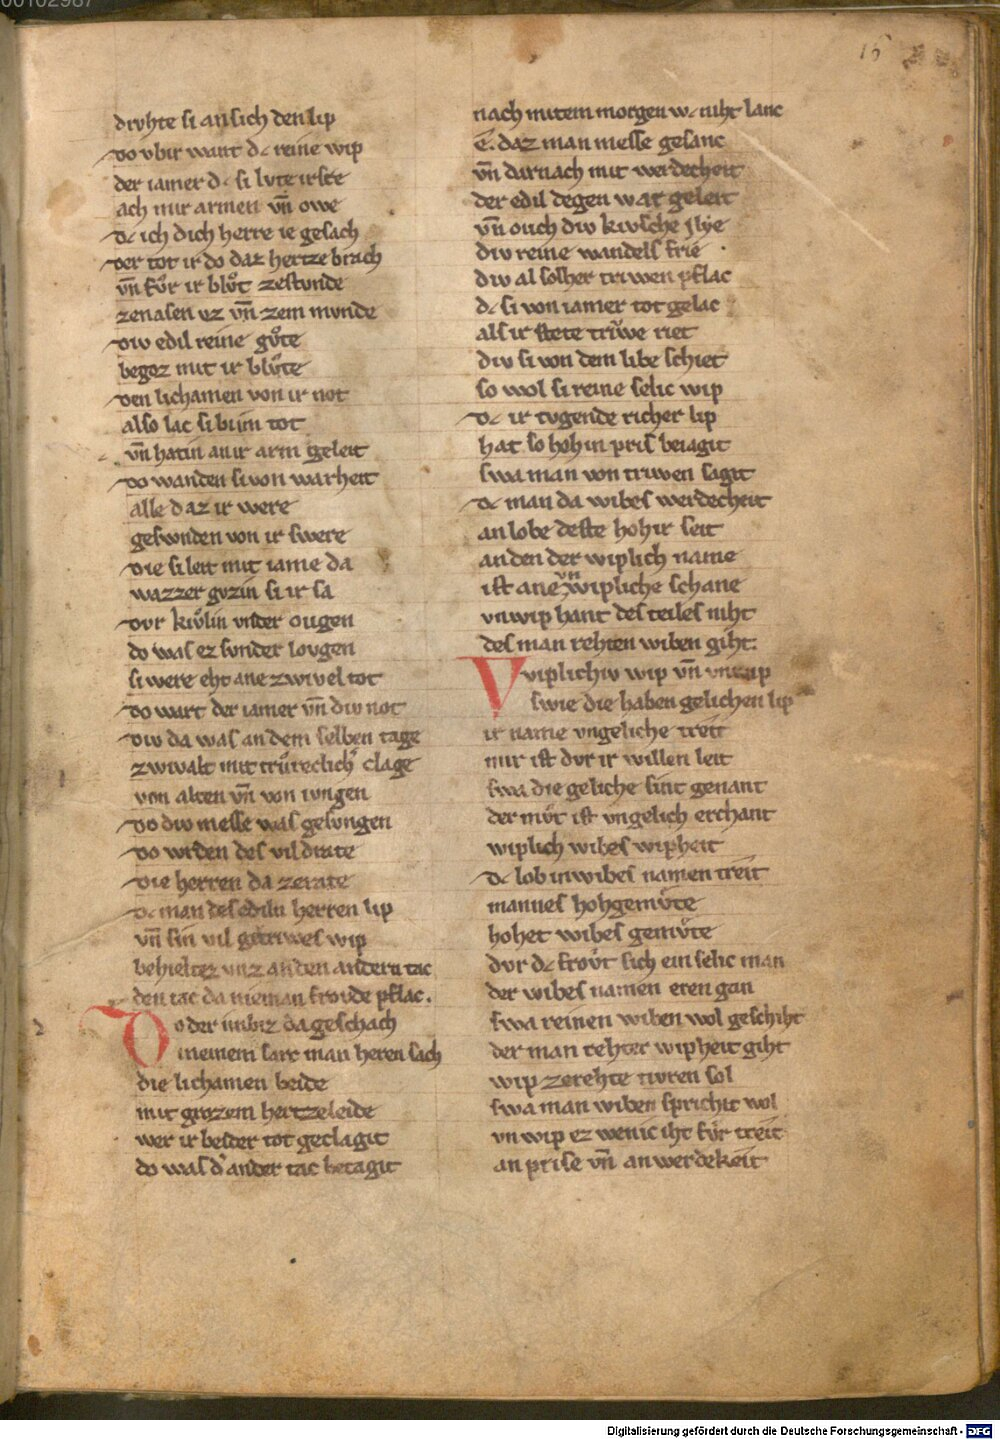 00102987
15
druhte si an sich den lip
do ubir want dc reine wip
der iamer dc si lute irscre
ach mir armen vn̄ owe
dc ich dich herre ie gesach
der tot ir do daz hertze brach
vn̄ fůr ir blůt zestunde
zenasen uz vn̄ zem munde
diu edil reine gůte
begoz mit ir blůte
den lichamen von ir not
also lac si bi im tot
vn̄ hat in an ir arm geleit
do wanden si von warheit
alle daz ir were
geswnden von ir swere
die si leit mit iame da
wazzer guzin si ir sa
dur kůlin under ougen
do was ez sunder lougen
si were eht ane zwivel tot
do wart der iamer vn̄ diu not
diu da was an dem selben tage
zwivalt mit trureclich' clage
von alten vn̄ von iungen
do diu messe was gesungen
do wrden des vil drate
die herren da zerate
dc man des ediln herren lip
vn̄ sin vil getriwes wip
behieltez unz an den andern tac
den tac da nieman froude pflac.
Do der imbiz da geschach
in einem sarc man heren sach
die lichamen beide
mit grozem hertzeleide
wer ir beider tot geclagit
do was d' ander tac betagit
nach mitem morgen wc niht lanc
ē. daz man messe gesanc
vn̄ darnach mit werdecheit
der edil degen wart geleit
vn̄ ouch diu kiusche ylye
diu reine wandels frie
diu al solher triwen pflac
dc si von iamer tot gelac
als ir stete trüwe riet
diu si von dem libe schiet
so wol si reine selic wip
dc ir tugende richer lip
hat so hoh in pris beiagit
swa man von triwen sagit
dc man da wibes werdecheit
an lobe deste hohir seit
an den der wiplich name
ist ane vn wipliche schame
unwip hant des teiles niht
des man rehten wiben giht.
Vviplichiu wip vn̄ vnwip
swie die haben gelichen lip
ir name ungeliche treit
mir ist dur ir willen leit
swa die geliche sint genant
der můt ist ungelich erchant
wiplich wibes wipheit
dc lob in wibes namen treit
mannes hohgemůte
hohet wibes gemůte
dur dc froůt sich ein selic man
der wibes namen eren gan
swa reinen wiben wol geschiht
der man rehter wipheit giht
wip zerehte turen sol
swa man wiben sprichit wol
unwip ez wenic iht fůr treit
an prise vn̄ an werdekeit
Digitalisierung gefördert durch die Deutsche Forschungsgemeinschaft - DFG